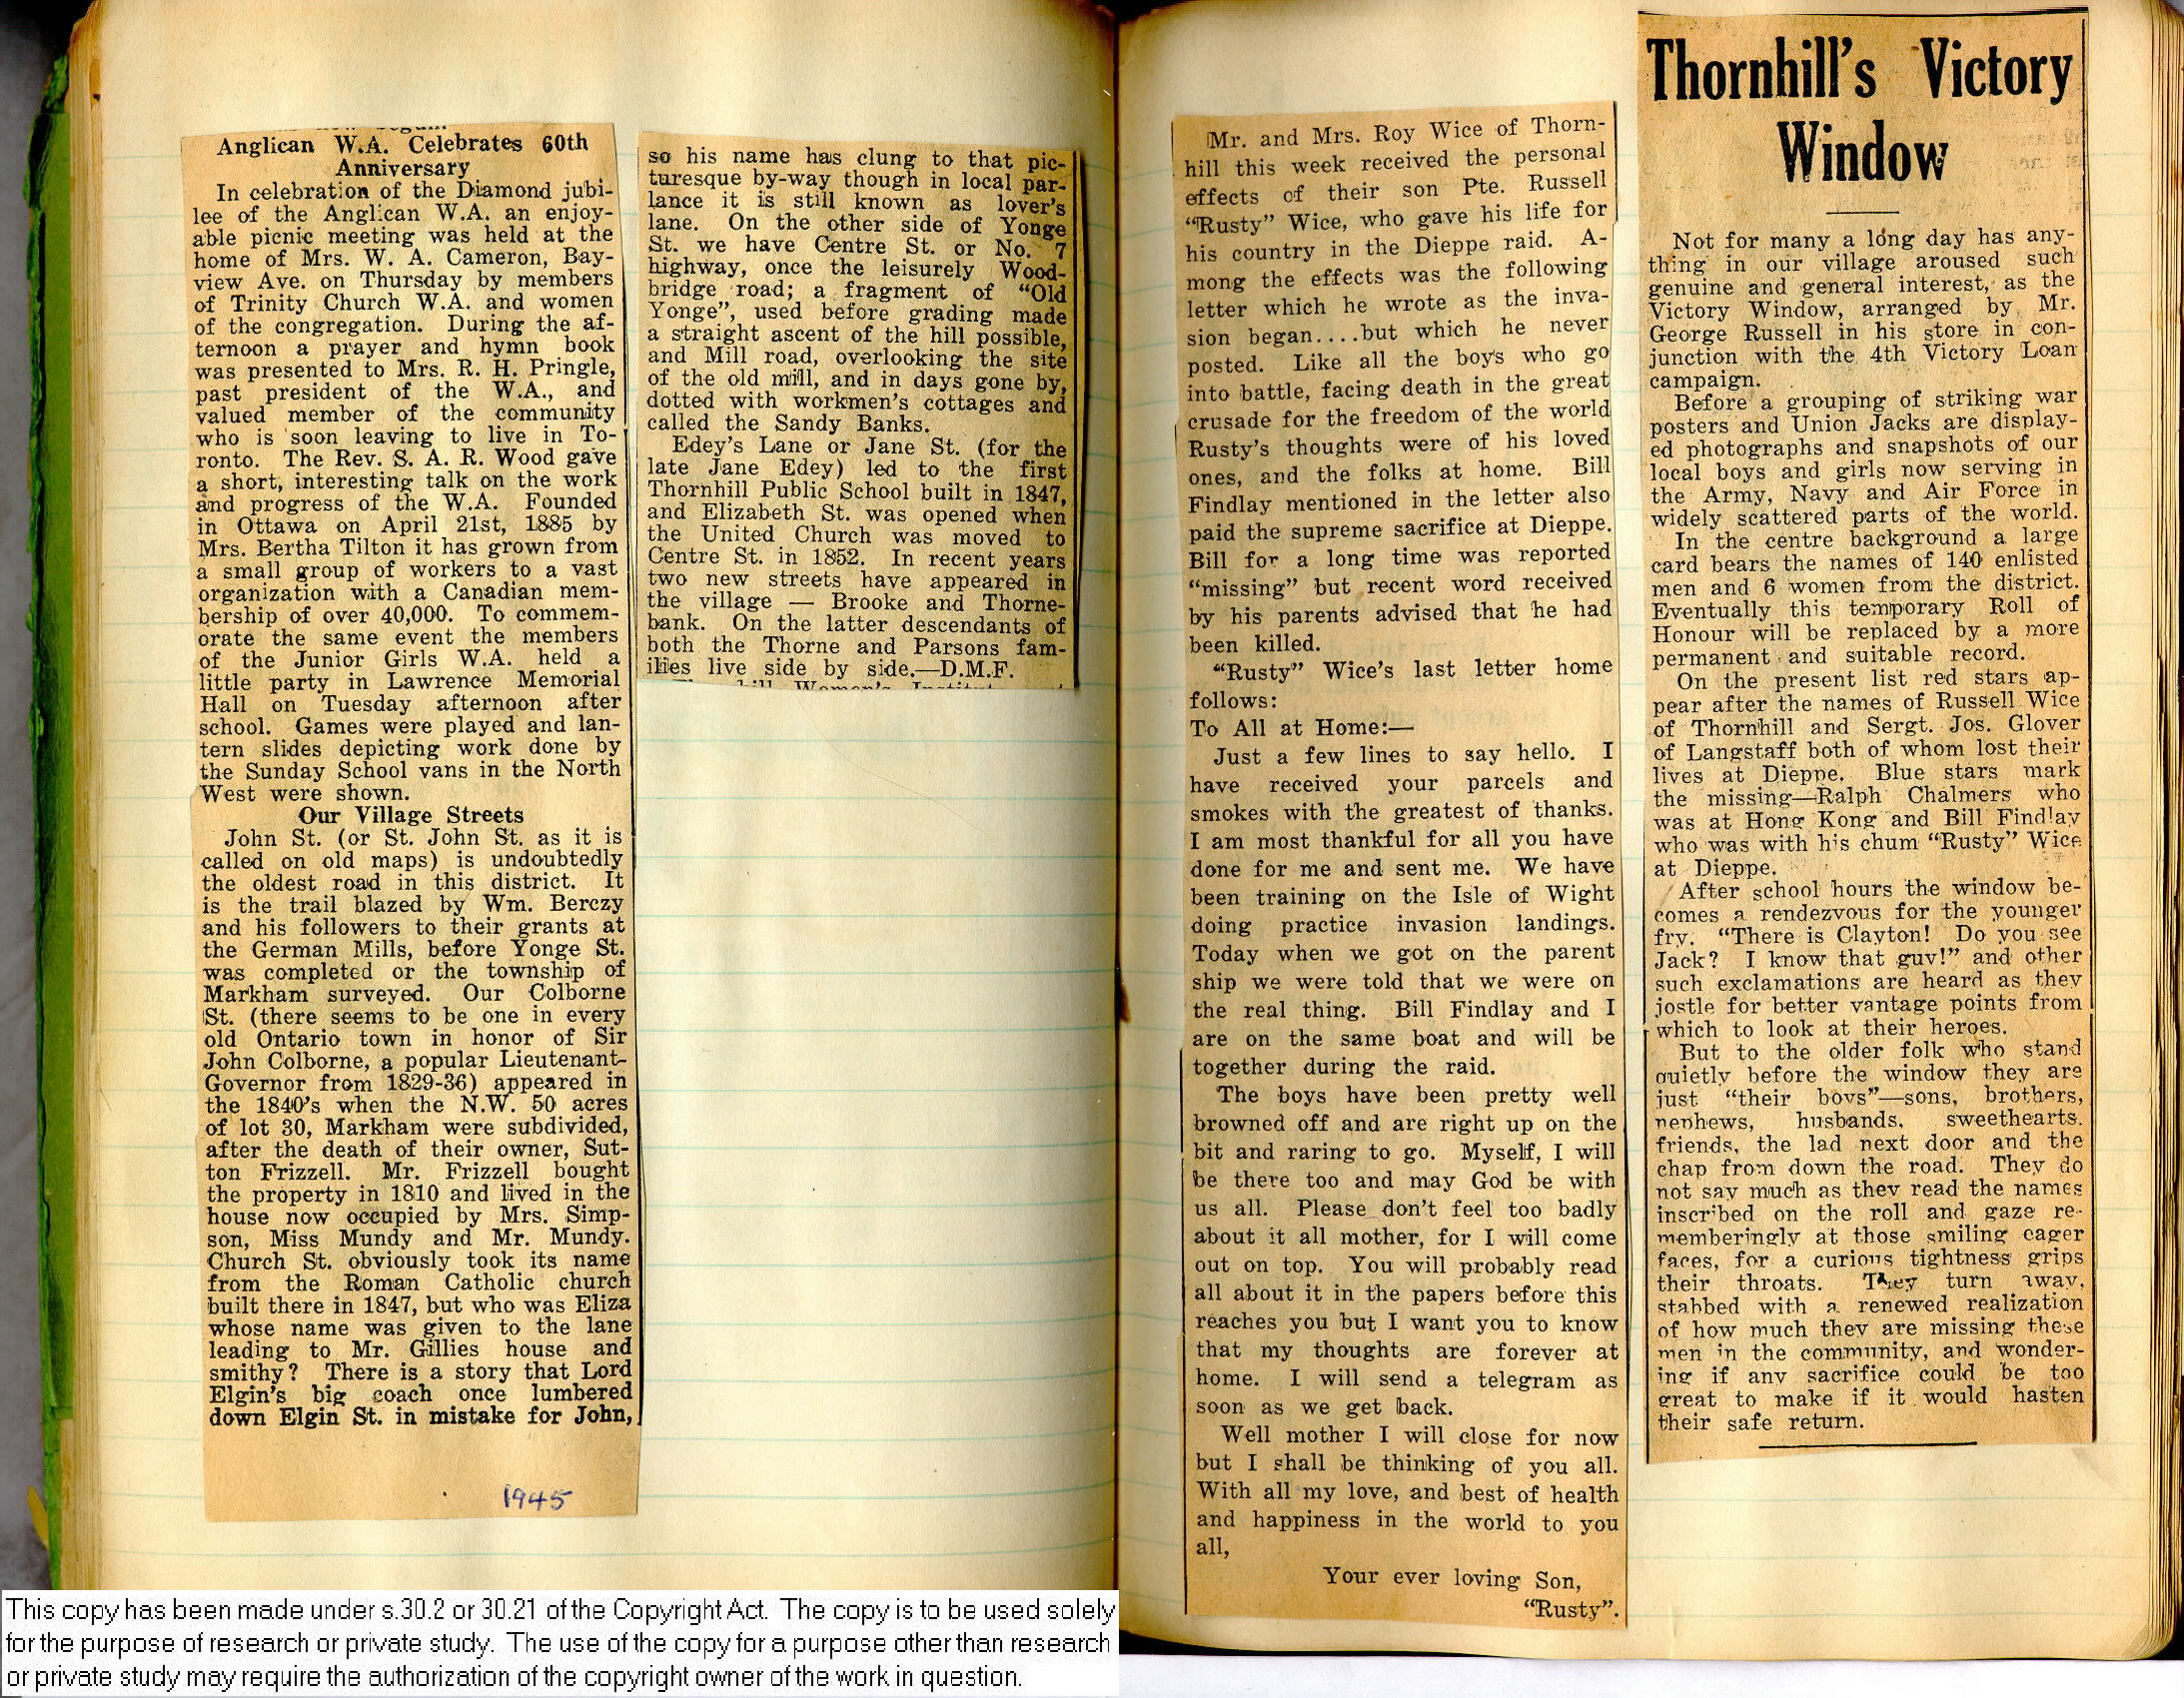 Anglican W.A. Celebrates 60th
Anniversary
In celebration of the Diamond jubi-
lee of the Anglican W.A. an enjoy-
able picnic meeting was held at the
home of Mrs. W. A. Cameron, Bay-
view Ave. on Thursday by members
of Trinity Church W.A. and women
of the congregation. During the af-
ternoon a prayer and hymn book
was presented to Mrs. R. H. Pringle,
past president of the W.A., and
valued member of the community
who is soon leaving to live in To-
ronto. The Rev. S. A. R. Wood gave
a short, interesting talk on the work
and progress of the W.A. Founded
in Ottawa on April 21st, 1885 by
Mrs. Bertha Tilton it has grown from
a small group of workers to a vast
organization with a Canadian mem-
bership of over 40,000. To commem-
orate the same event the members
of the Junior Girls W.A. held a
little party in Lawrence Memorial
Hall on Tuesday afternoon after
school. Games were played and lan-
tern slides depicting work done by
the Sunday School vans in the North
West were shown.
Our Village Streets
John St. (or St. John St. as it is
called on old maps) is undoubtedly
the oldest road in this district. It
is the trail blazed by Wm. Berczy
and his followers to their grants at
the German Mills, before Yonge St.
was completed or the township of
Markham surveyed. Our Colborne
St. (there seems to be one in every
old Ontario town in honor of Sir
John Colborne, a popular Lieutenant-
Governor from 1829-36) appeared in
the 1840's when the N.W. 50 acres
of lot 30, Markham were subdivided,
after the death of their owner, Sut-
ton Frizzell. Mr. Frizzell bought
the property in 1810 and lived in the
house now occupied by Mrs. Simp-
son, Miss Mundy and Mr. Mundy.
Church St. obviously took its name
from the Roman Catholic church
built there in 1847, but who was Eliza
whose name was given to the lane
leading to Mr. Gillies house and
smithy? There is a story that Lord
Elgin's big coach once lumbered
down Elgin St. in mistake for John,
1945
so his name has clung to that pic-
turesque by-way though in local par-
lance it is still known as lover's
lane. On the other side of Yonge
St. we have Centre St. or No. 7
highway, once the leisurely Wood-
bridge road; a fragment of "Old
Yonge", used before grading made
a straight ascent of the hill possible,
and Mill road, overlooking the site
of the old mill, and in days gone by,
dotted with workmen's cottages and
called the Sandy Banks.
Edey's Lane or Jane St. (for the
late Jane Edey) led to the first
Thornhill Public School built in 1847,
and Elizabeth St. was opened when
the United Church was moved to
Centre St. in 1852. In recent years
two new streets have appeared in
the village — Brooke and Thorne-
bank. On the latter descendants of
both the Thorne and Parsons fam-
ilies live side by side.—D.M.F.
Mr. and Mrs. Roy Wice of Thorn-
hill this week received the personal
effects of their son Pte. Russell
"Rusty" Wice, who gave his life for
his country in the Dieppe raid. A-
mong the effects was the following
letter which he wrote as the inva-
sion began....but which he never
posted. Like all the boys who go
into battle, facing death in the great
crusade for the freedom of the world
Rusty's thoughts were of his loved
ones, and the folks at home. Bill
Findlay mentioned in the letter also
paid the supreme sacrifice at Dieppe.
Bill for a long time was reported
"missing" but recent word received
by his parents advised that he had
been killed.
"Rusty" Wice's last letter home
follows:
To All at Home:—
Just a few lines to say hello. I
have received your parcels and
smokes with the greatest of thanks.
I am most thankful for all you have
done for me and sent me. We have
been training on the Isle of Wight
doing practice invasion landings.
Today when we got on the parent
ship we were told that we were on
the real thing. Bill Findlay and I
are on the same boat and will be
together during the raid.
The boys have been pretty well
browned off and are right up on the
bit and raring to go. Myself, I will
be there too and may God be with
us all. Please don't feel too badly
about it all mother, for I will come
out on top. You will probably read
all about it in the papers before this
reaches you but I want you to know
that my thoughts are forever at
home. I will send a telegram as
soon as we get back.
Well mother I will close for now
but I shall be thinking of you all.
With all my love, and best of health
and happiness in the world to you
all,
Your ever loving Son,
"Rusty".
Thornhill's Victory
Window
Not for many a long day has any-
thing in our village aroused such
genuine and general interest, as the
Victory Window, arranged by Mr.
George Russell in his store in con-
junction with the 4th Victory Loan
campaign.
Before a grouping of striking war
posters and Union Jacks are display-
ed photographs and snapshots of our
local boys and girls now serving in
the Army, Navy and Air Force in
widely scattered parts of the world.
In the centre background a large
card bears the names of 140 enlisted
men and 6 women from the district.
Eventually this temporary Roll of
Honour will be replaced by a more
permanent and suitable record.
On the present list red stars ap-
pear after the names of Russell Wice
of Thornhill and Sergt. Jos. Glover
of Langstaff both of whom lost their
lives at Dieppe. Blue stars mark
the missing—Ralph Chalmers who
was at Hong Kong and Bill Findlay
who was with his chum "Rusty" Wice
at Dieppe.
After school hours the window be-
comes a rendezvous for the younger
fry. "There is Clayton! Do you see
Jack? I know that guy!" and other
such exclamations are heard as they
jostle for better vantage points from
which to look at their heroes.
But to the older folk who stand
quietly before the window they are
just "their boys"—sons, brothers,
nephews, husbands, sweethearts,
friends, the lad next door and the
chap from down the road. They do
not say much as they read the names
inscribed on the roll and gaze re-
memberingly at those smiling eager
faces, for a curious tightness grips
their throats. They turn away,
stabbed with a renewed realization
of how much they are missing these
men in the community, and wonder-
ing if any sacrifice could be too
great to make if it would hasten
their safe return.
This copy has been made under s.30.2 or 30.21 of the Copyright Act. The copy is to be used solely
for the purpose of research or private study. The use of the copy for a purpose other than research
or private study may require the authorization of the copyright owner of the work in question.